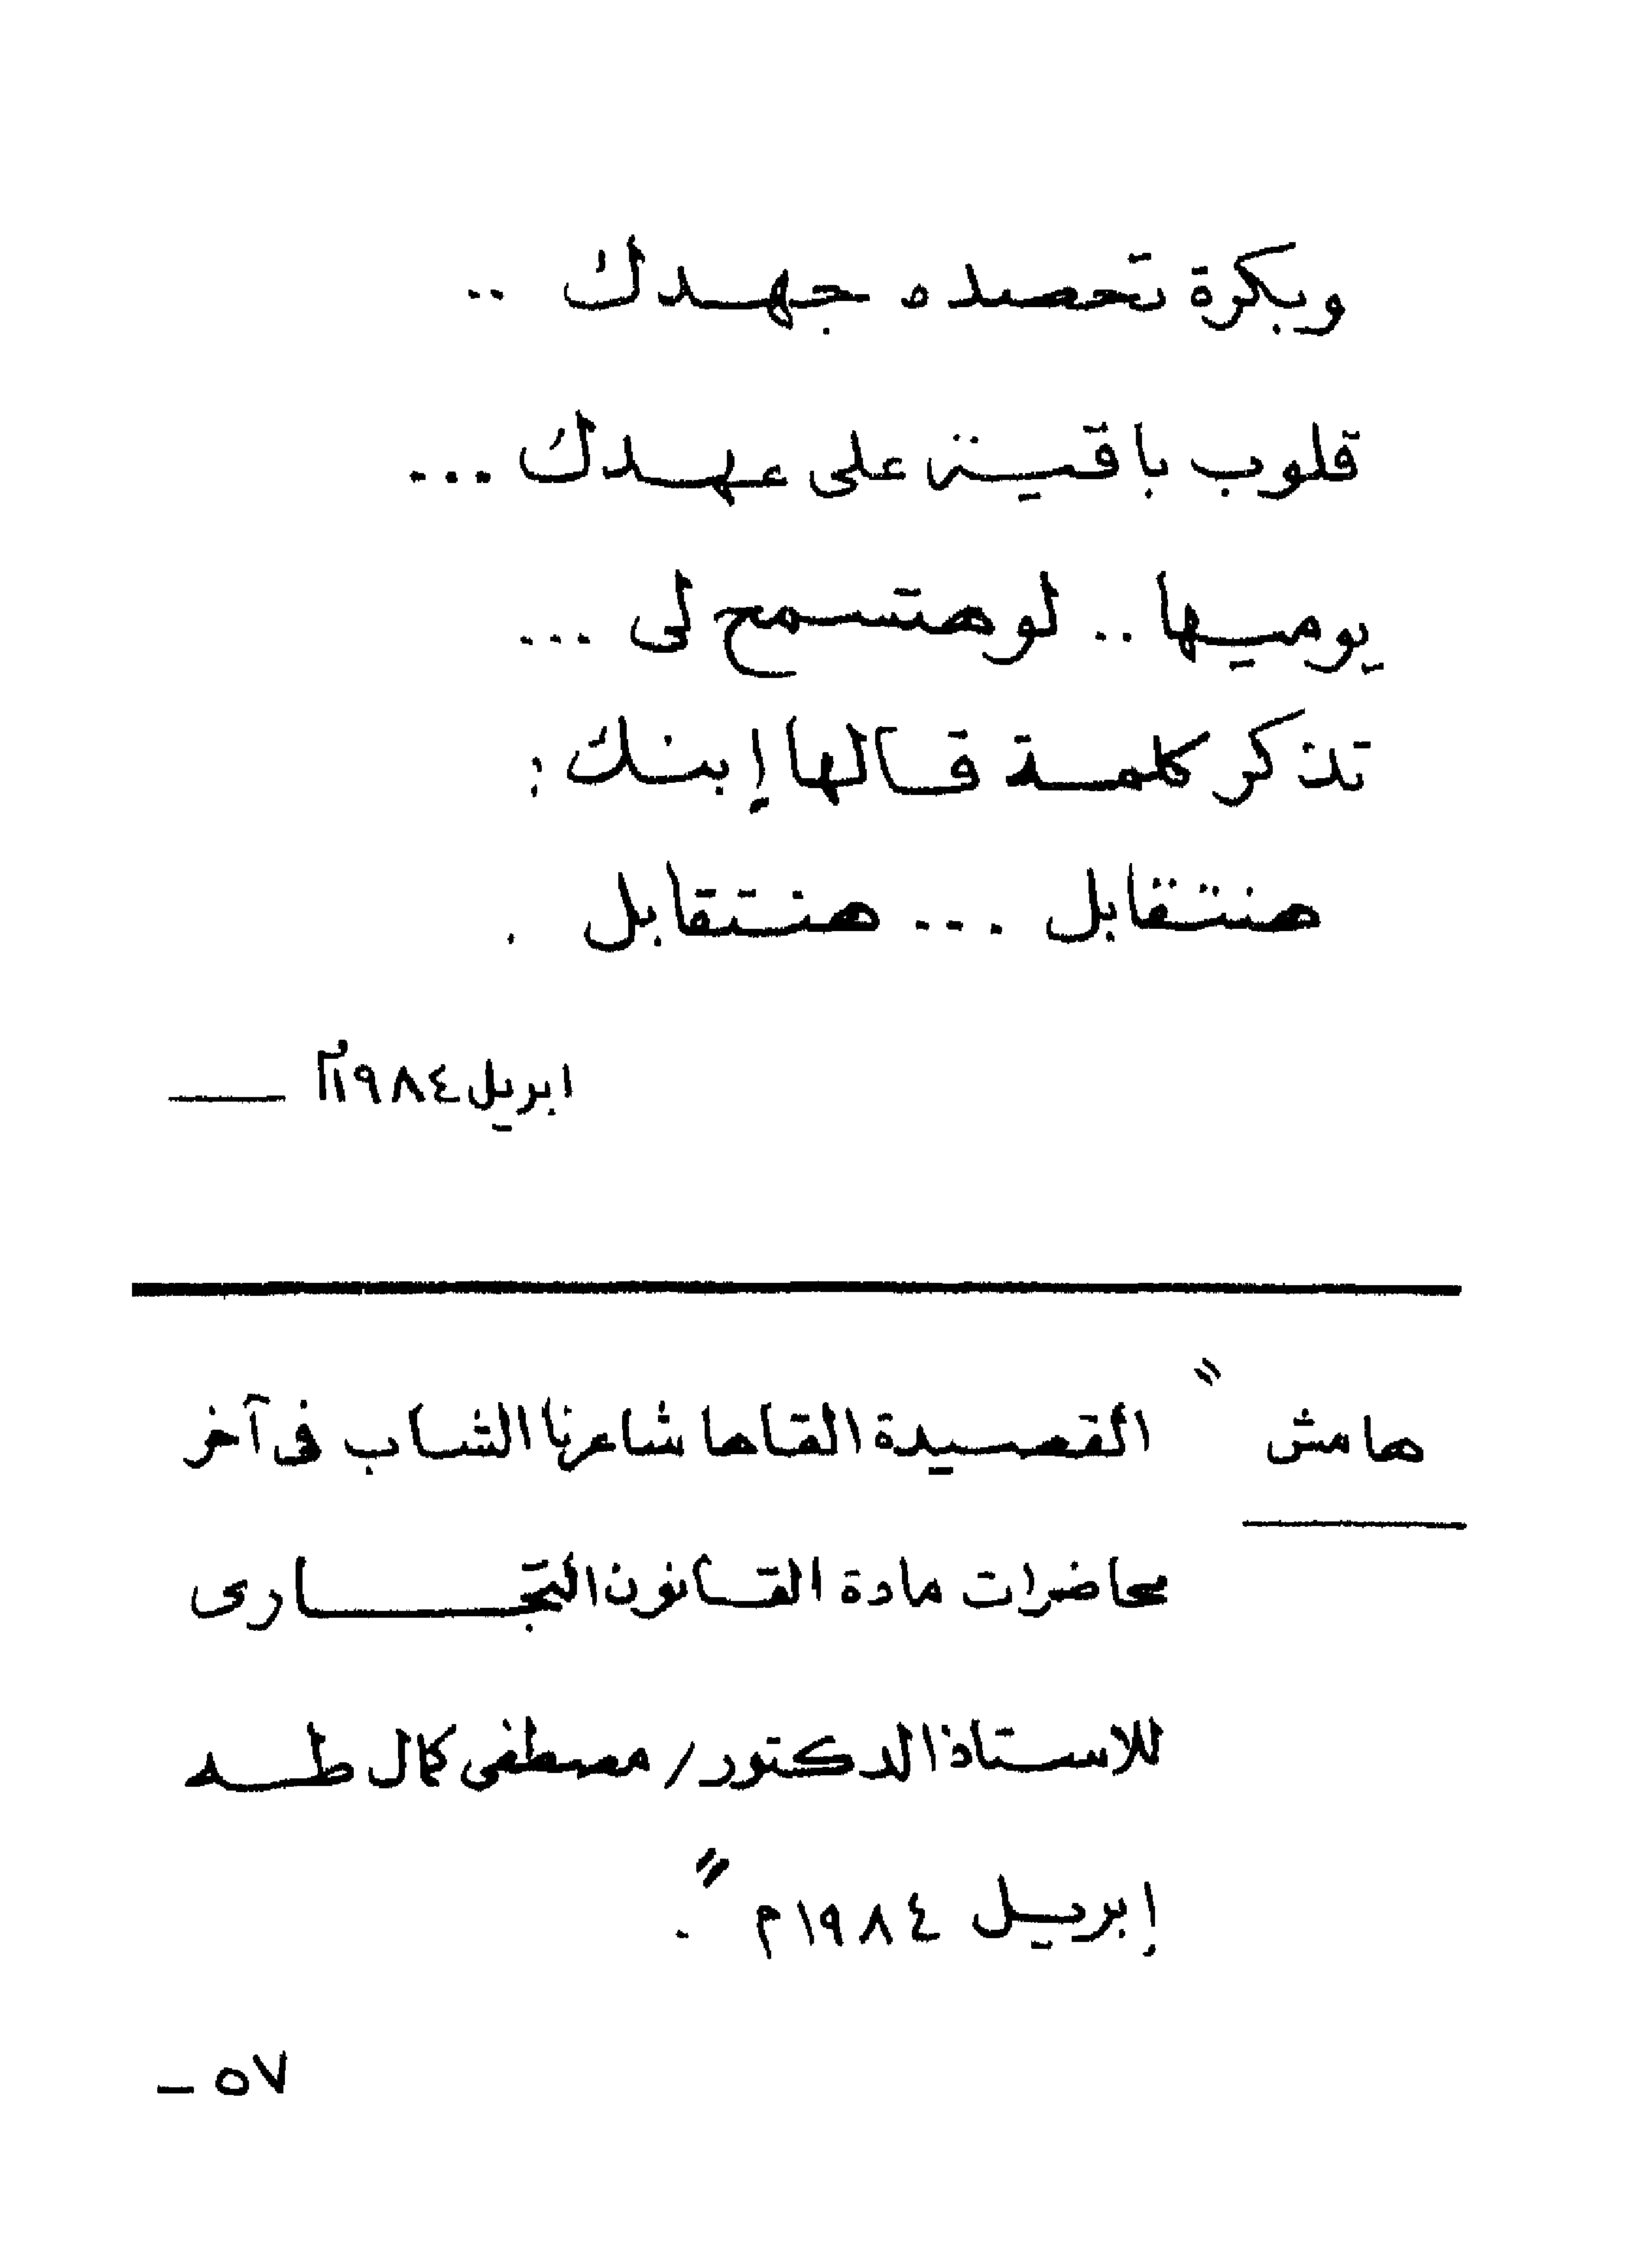 وبكرة تحصده جهدك ..
قلوب باقية على عهدك ...
يوميها .. لو هتسمح لى ...
تذكر كلمة قالها إبنك :
هنتقابل ... هنتقابل .
ابريل ١٩٨٤م
هامش " القصيدة القاها شاعرنا الشاب فى آخر
محاضرات مادة القانون التجارى
للاستاذ الدكتور / مصطفى كمال طه
إبريل ١٩٨٤م " .
٥٧ -